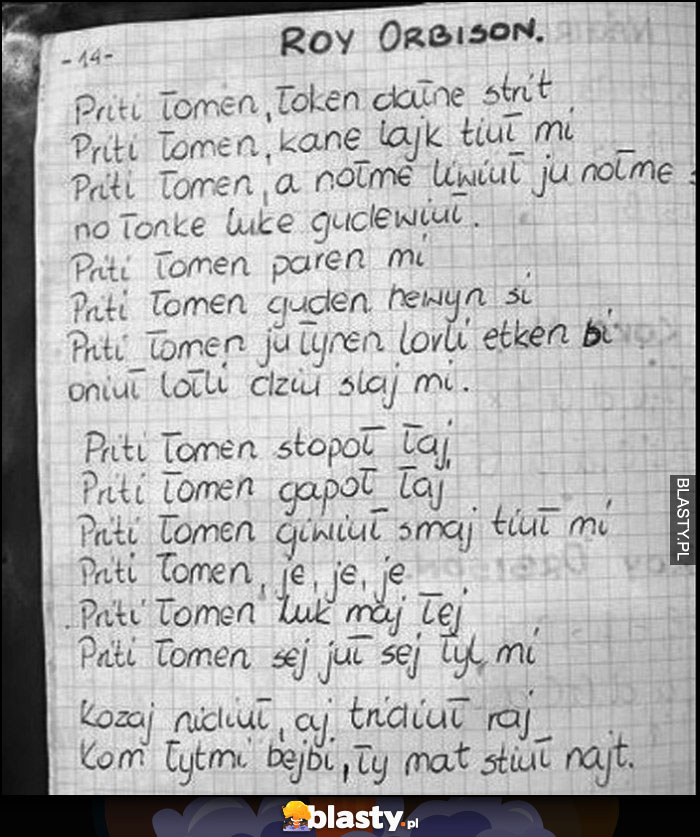 -14-
ROY ORBISON.
Priti Łomen, Łoken dałne strit
Priti Łomen, kane lajk tiuł mi
Priti Łomen, a nołme liwiuł ju nołme
no Łonke luke gudewiuł.
Priti Łomen paren mi
Priti Łomen guden hewyn si
Priti Łomen ju łyren lovli etken bi
oniuł lołli dziu slaj mi.
Priti Łomen stopoł łaj,
Priti Łomen gapoł łaj
Priti Łomen giwiuł smaj tiuł mi
Priti Łomen, je, je, je
Priti Łomen luk maj łej
Priti Łomen sej juł sej łyl mi
Kozaj nidiuł, aj tridiuł raj
Kom łytmi bejbi, ły mat stiuł najt.
BLASTY.PL
blasty.pl